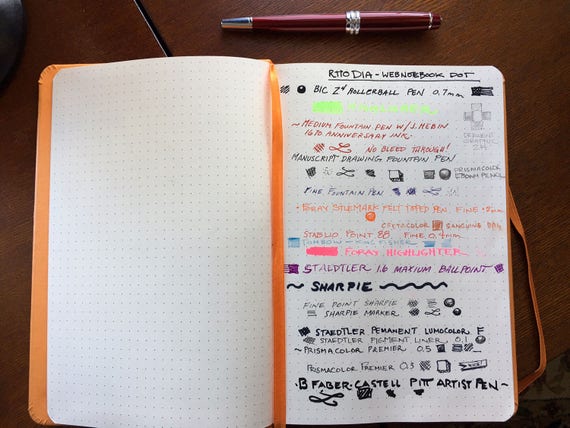 RHODIA - WEBNOTEBOOK DOT
BIC Z4 ROLLERBALL PEN 0.7mm
~ MEDIUM FOUNTAIN PEN W/ J. HERBIN
1670 ANNIVERSARY INK.
NO BLEED THROUGH!
DERWENT
GRAPHIC
MANUSCRIPT DRAWING FOUNTAIN PEN
PRISMACOLOR
EBONY PENCIL
FINE FOUNTAIN PEN
FORAY STILEMARK FELT TIPPED PEN FINE
CRETACOLOR SANGUINE
STABILO POINT 88, FINE 0.4mm
TOMBOW - KING FISHER
FORAY HIGHLIGHTER
STAEDTLER 1.6 MAXIUM BALLPOINT
~ SHARPIE
FINE POINT SHARPIE
SHARPIE MARKER
STAEDTLER PEMANENT LUMOCOLOR F
STAEDTLER PIGMENT LINER 0.1
~ PRISMACOLOR PREMIER 0.5
PRISMACOLOR PREMIER 0.3
· B FABER-CASTELL PITT ARTIST PEN ~